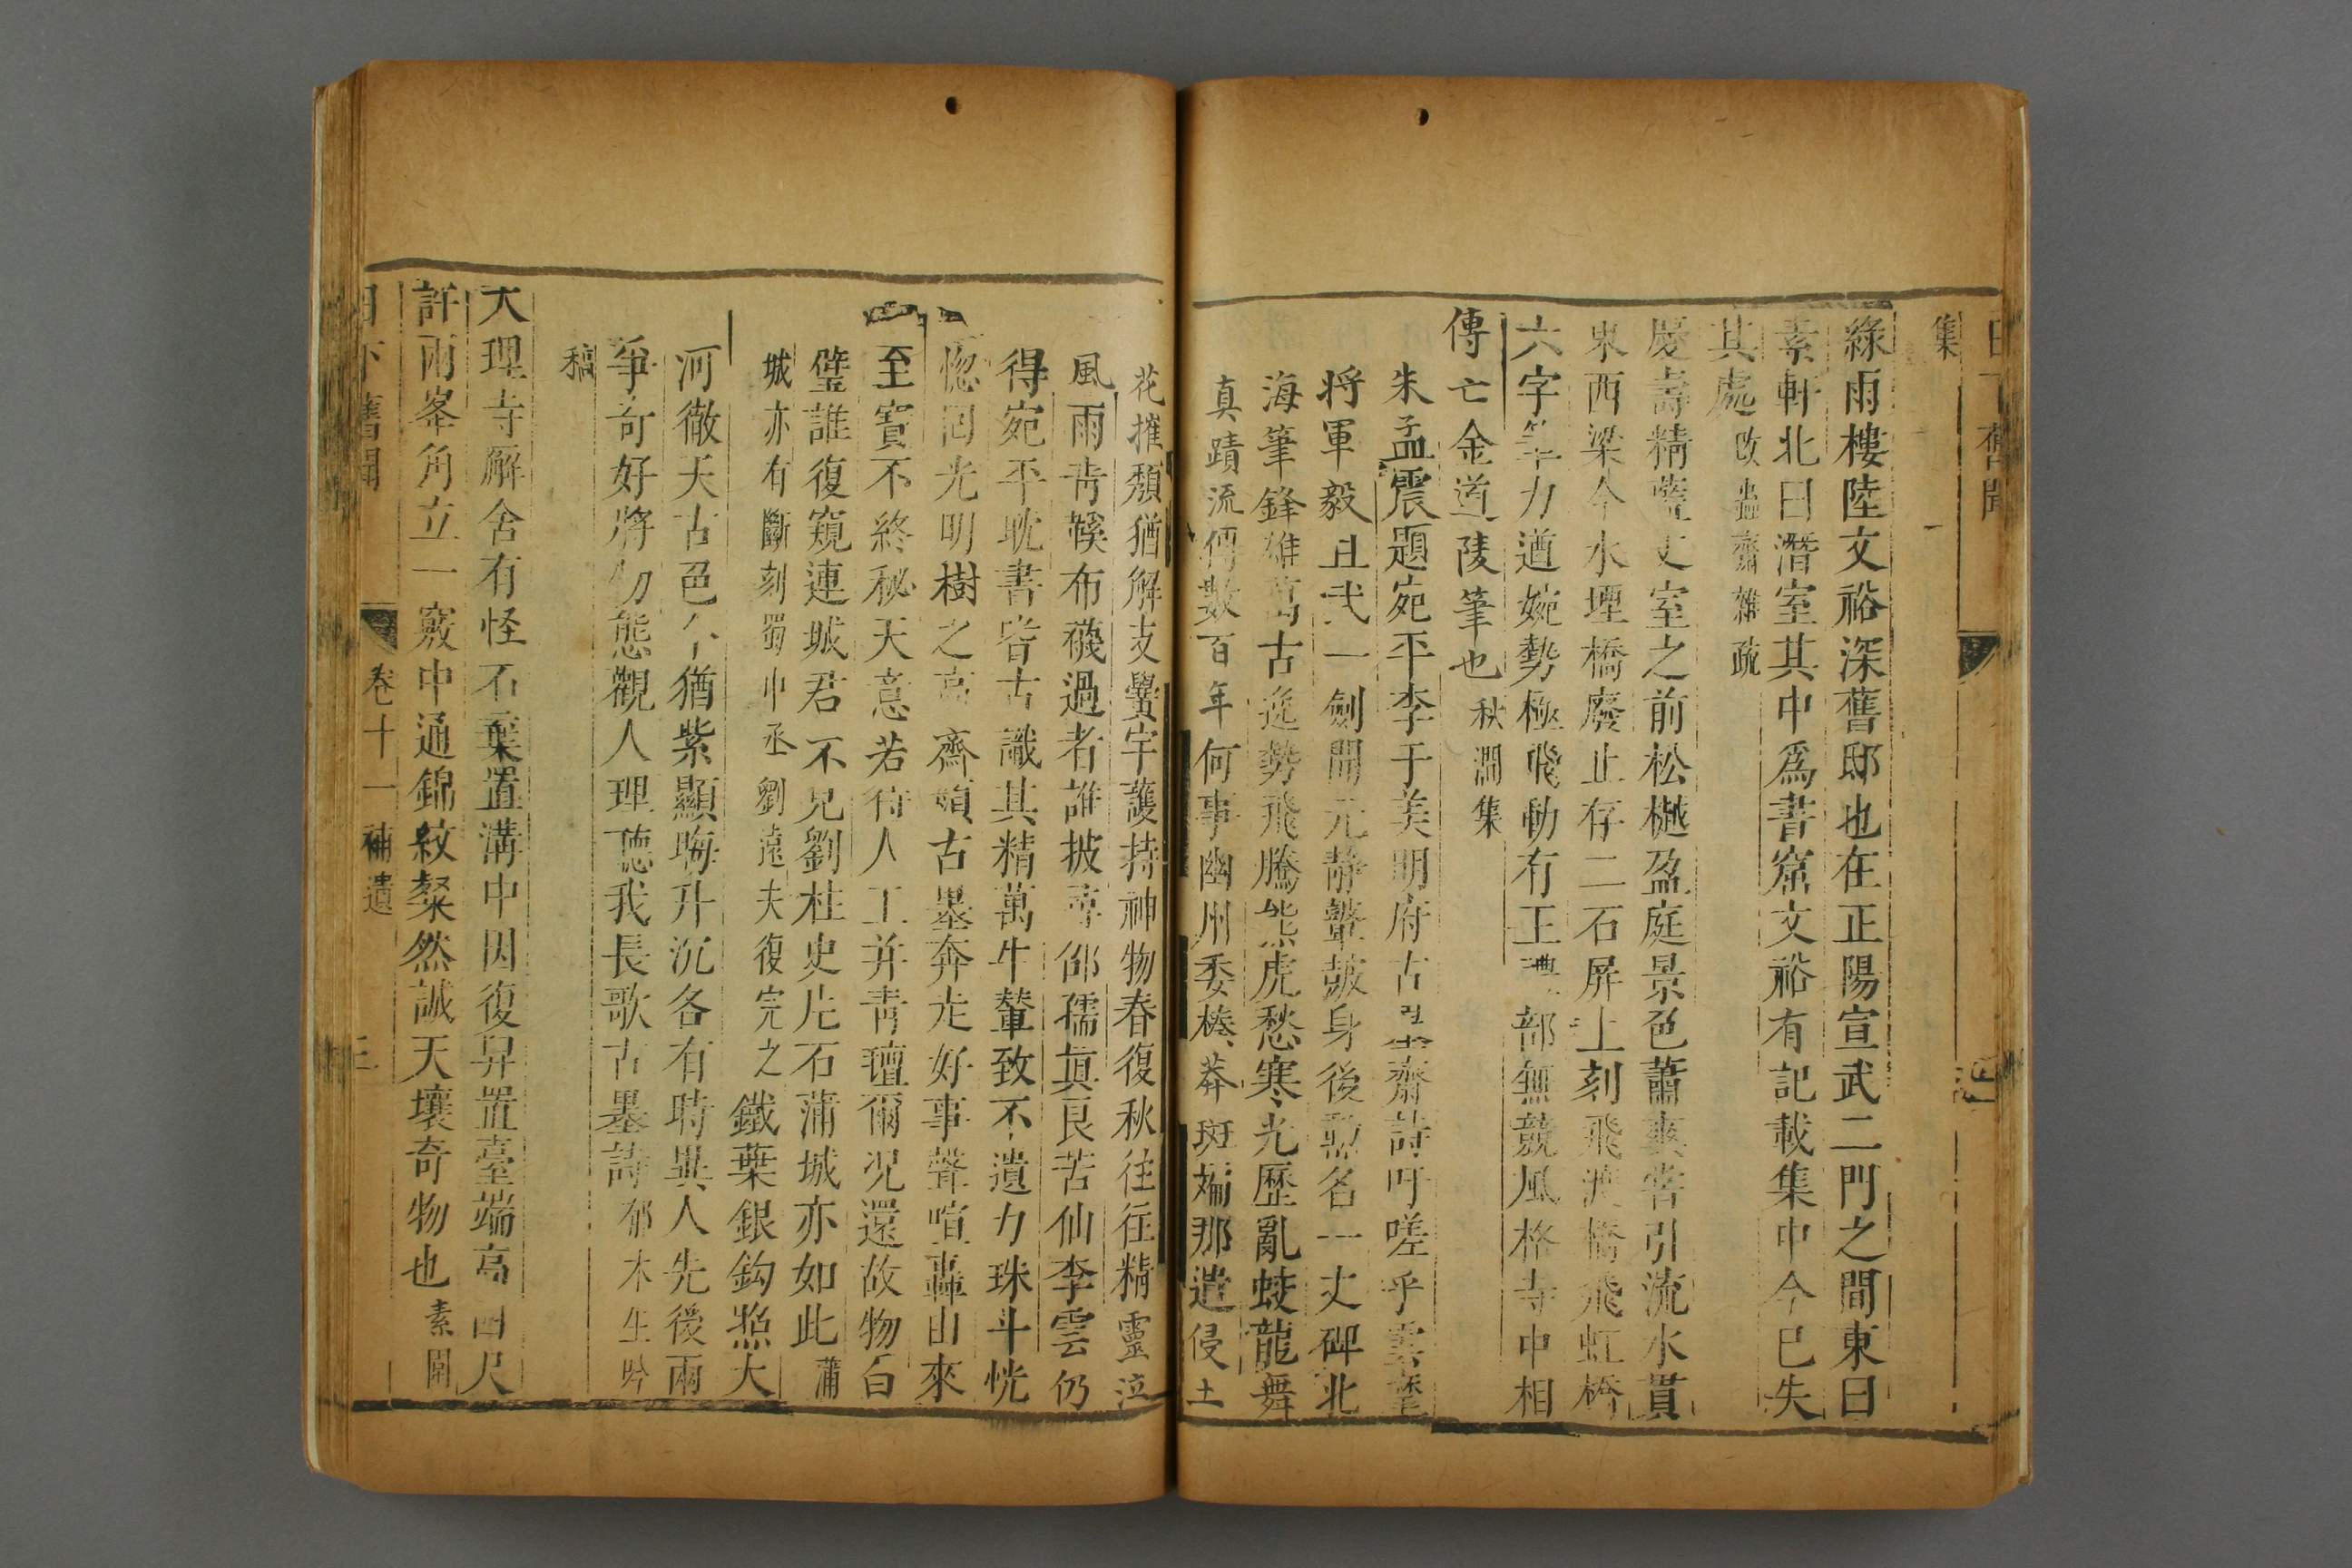 日下舊聞
集
綠雨樓陸文裕深舊邸也在正陽宣武二門之間東曰
素軒北曰潛室其中爲書窟文裕有記載集中今已失
其處改蟲齋雜疏
慶壽精藍丈室之前松樾盈庭景色蕭爽嘗引流水貫
東西梁今水堙橋廢止存二石屏上刻飛渡橋飛虹橋
六字筆力遒婉勢極飛動有王禮部無競風格寺中相
傳亡金道陵筆也秋澗集
朱孟震題宛平李于美明府古墨齋詩吁嗟乎雲麾
將軍毅且武一劍開元靜鼙鼓身後勳名一丈碑北
海筆鋒雄萬古遊勢飛騰熊虎愁寒光歷亂蛟龍舞
真蹟流傳數百年何事幽州委榛莽斑斕那遣侵土
花摧頹猶解支黌宇護持神物春復秋往往精靈泣
風雨靑帳布襪過者誰披尋郤孺眞良苦仙李雲仍
得宛平耽書嗜古識其精萬牛輦致不遺力珠斗恍
惚回光明樹之高齋顏古墨奔走好事聲喧轟由來
至寶不終秘天意若待人工并靑瓊爾况還故物白
璧誰復窺連城君不見劉杜史片石蒲城亦如此蒲
城亦有斷刻蜀中丞劉遠夫復完之鐵葉銀鈎照大
河徹天古色猶紫顯晦升沉各有時異人先後兩
爭奇好將幻態觀人理聽我長歌古墨詩郁木生吟
稿
大理寺廨舍有怪石棄置溝中因復舁置臺端高四尺
許兩峯角立一竅中通錦紋粲然誠天壤奇物也素園
日下舊聞 卷十一補遺